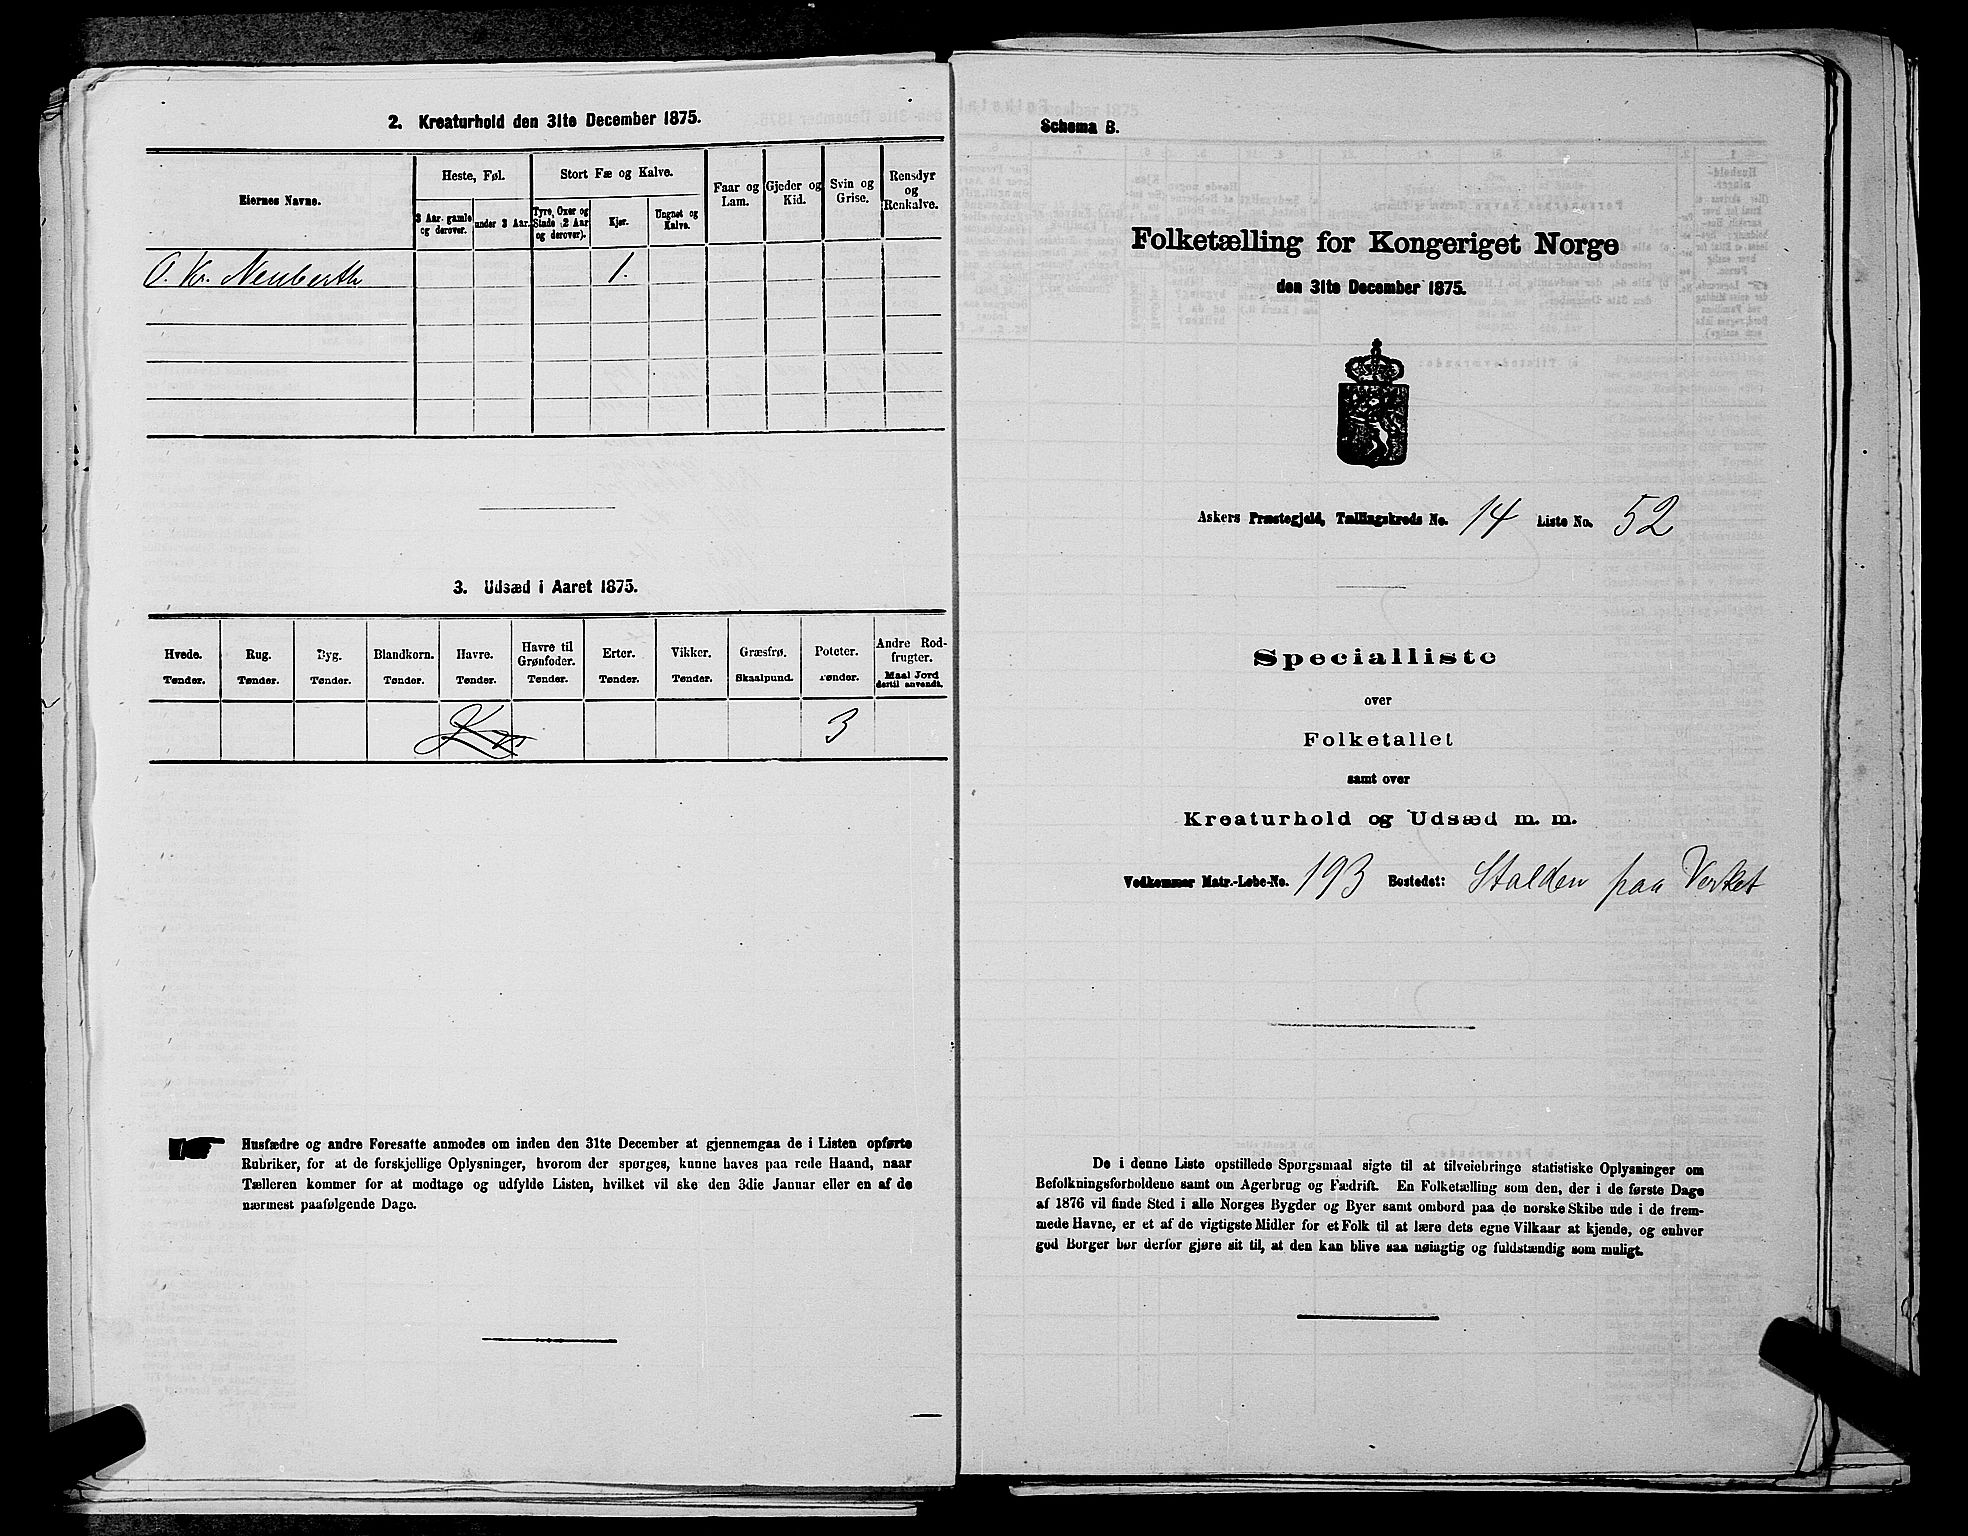 2. Kreaturhold den 31te December 1875.
Eiernes Navne.
Heste, Føl.
Stort Fæ og Kalve.
Faar og Lam.
Gjeder og Kid.
Svin og Grise.
Rensdyr og Renkalve.
3 Aar gamle og derover.
under 3 Aar.
Tyre, Oxer og Stude (2 Aar og derover).
Kjør.
Ungnet og Kalve.
O. Kr. Neuberth 1.
3. Udsæd i Aaret 1875.
Hvede. Rug. Byg. Blandkorn. Havre. Havre til Grønfoder. Erter. Vikker. Græsfrø. Poteter. Andre Rodfrugter.
Tønder. Tønder. Tønder. Tønder. Tønder. Tønder. Tønder. Tønder. Skaalpund. Tønder. Maal Jord dertil anvendt.
3
Husfædre og andre Foresatte anmodes om inden den 31te December at gjennemgaa de i Listen opførte
Rubriker, for at de forskjellige Oplysninger, hvorom der spørges, kunne haves paa rede Haand, naar
Tælleren kommer for at modtage og udfylde Listen, hvilket vil ske den 3die Januar eller en af de
nærmest paafølgende Dage.
Schema B.
Folketælling for Kongeriget Norge
den 31te December 1875.
Askers Præstegjeld, Tællingskreds No. 14 Liste No. 52
Specialliste
over
Folketallet
samt over
Kreaturhold og Udsæd m. m.
Vedkommer Matr.-Løbe-No. 193 Bostedet: Stalden paa Verket
De i denne Liste opstillede Spørgsmaal sigte til at tilveiebringe statistiske Oplysninger om
Befolkningsforholdene samt om Agerbrug og Fædrift. En Folketælling som den, der i de første Dage
af 1876 vil finde Sted i alle Norges Bygder og Byer samt ombord paa de norske Skibe ude i de frem-
mede Havne, er et af de vigtigste Midler for et Folk til at lære dets egne Vilkaar at kjende, og enhver
god Borger bør derfor gjøre sit til, at den kan blive saa nøiagtig og fuldstændig som muligt.